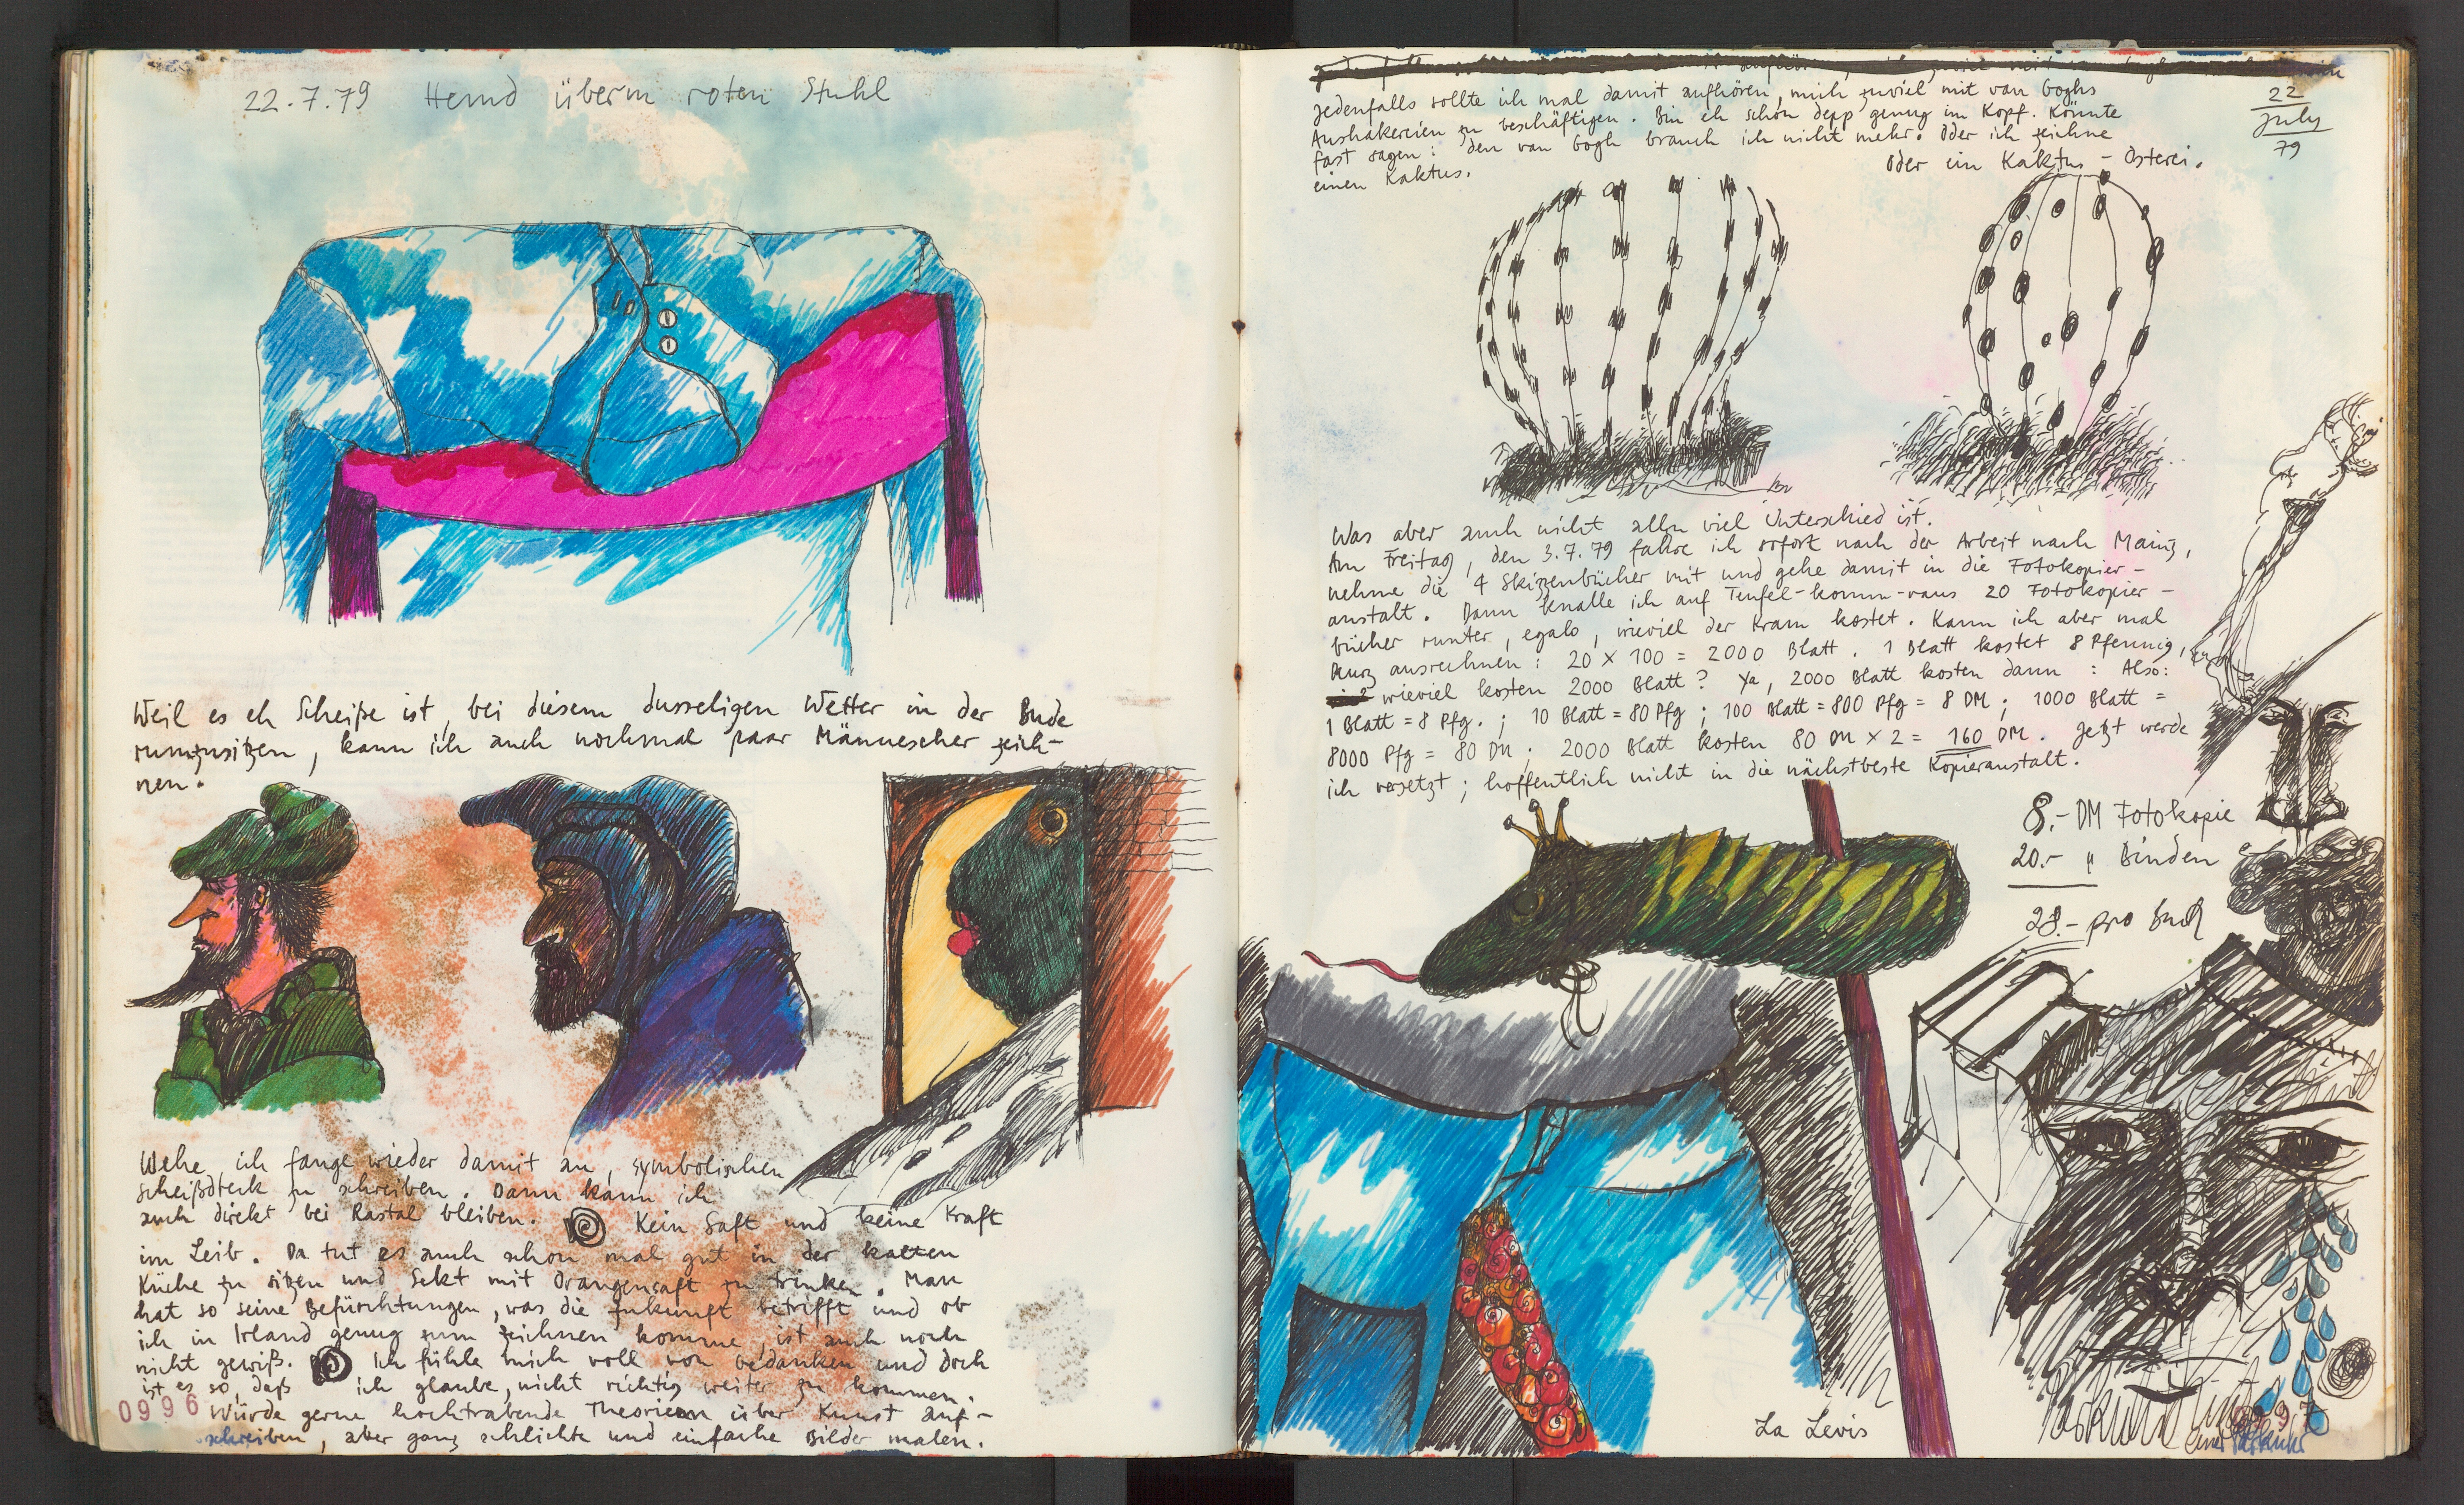 22.7.79 Hemd überm roten Stuhl
Weil es eh Scheiße ist, bei diesem dusseligen Wetter in der Bude
rumzusitzen, kann ich auch nochmal paar Männescher zeich-
nen.
Wehe, ich fange wieder damit an, symbolischen
Scheißdreck zu schreiben. Dann kann ich
auch direkt bei Rastal bleiben. Kein Saft und keine Kraft
im Leib. Da tut es auch schon mal gut in der kalten
Küche zu sitzen und Sekt mit Orangensaft zu trinken. Man
hat so seine Befürchtungen, was die Zukunft betrifft und ob
ich in Irland genug zum zeichnen komme, ist auch noch
nicht gewiß. Ich fühle mich voll von Gedanken und doch
ist es so, daß ich glaube, nicht richtig weiter zu kommen.
0996 Würde gerne hochtrabende Theorieen über Kunst auf-
schreiben, aber ganz schlichte und einfache Bilder malen.
jedenfalls sollte ich mal damit aufhören, mich zuviel mit van Goghs
Aushakereien zu beschäftigen. Bin eh schon depp genug im Kopf. Könnte
fast sagen: den van Gogh brauch ich nicht mehr. Oder ich zeichne
einen Kaktus.
Oder ein Kaktus-Osterei.
22
July
79
Was aber auch nicht allzu viel Unterschied ist.
Am Freitag, den 3.7.79 fahre ich sofort nach der Arbeit nach Mainz,
nehme die 4 Skizzenbücher mit und gehe damit in die Fotokopier-
anstalt. Dann knalle ich auf Teufel-komm-raus 20 Fotokopier-
bücher runter, egalo, wieviel der Kram kostet. Kann ich aber mal
kurz ausrechnen: 20 x 100 = 2000 Blatt. 1 Blatt kostet 8 Pfennig,
wieviel kosten 2000 Blatt? Ya, 2000 Blatt kosten dann: Also:
1 Blatt = 8 Pfg.; 10 Blatt = 80 Pfg; 100 Blatt = 800 Pfg = 8 DM; 1000 Blatt =
8000 Pfg = 80 DM; 2000 Blatt kosten 80 DM x 2 = 160 DM. Jetzt werde
ich versetzt; hoffentlich nicht in die nächstbeste Kopieranstalt.
8.- DM Fotokopie
20.- " Binden
28.- pro Buch
La Levis